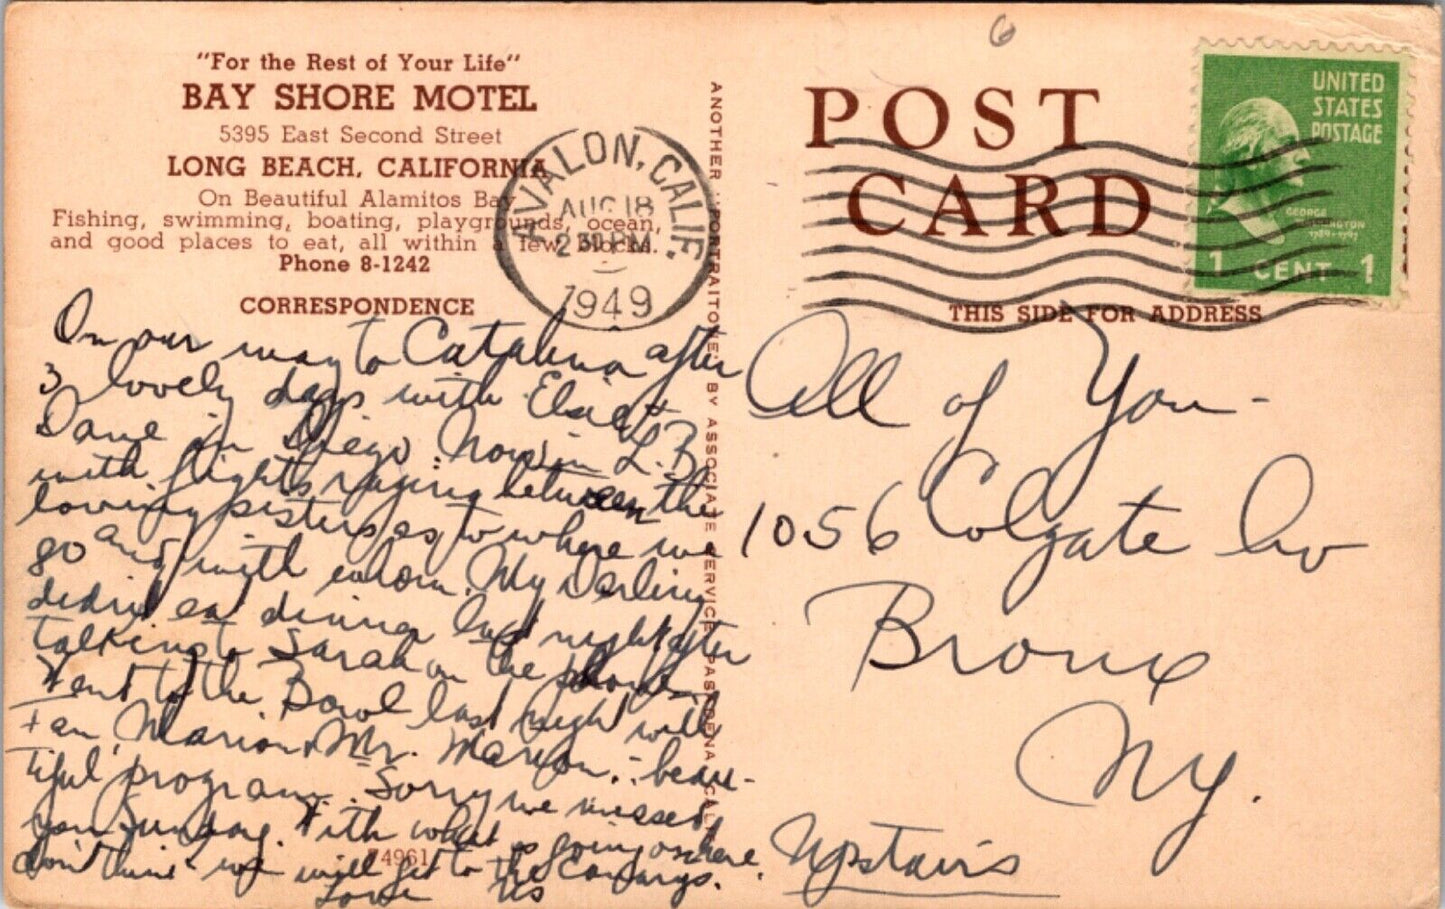 "For the Rest of Your Life"
BAY SHORE MOTEL
5395 East Second Street
LONG BEACH, CALIFORNIA
On Beautiful Alamitos Bay
Fishing, swimming, boating, playgrounds, ocean,
and good places to eat, all within a few blocks.
Phone 8-1242
CORRESPONDENCE
On our way to Catalina after
3 lovely days with Elsie +
Dave in Diego. Now in L.B.
with fights raging between the
loving sisters as to where we
go and with whom. My Darling
didn't eat dinner last night after
talking to Sarah on the phone.
Went to the Bowl last night with
Fan, Marion + Mr. Marion. - beau-
tiful program. Sorry we missed
you Sunday. With what is going on here
don't think we will get to the
Love Us
74961
ANOTHER "PORTRAITONE" BY ASSOCIATE SERVICE, PASADENA, CALIF.
AVALON, CALIF.
AUG 18
2 30 PM
1949
6
POST
CARD
UNITED
STATES
POSTAGE
GEORGE
WASHINGTON
1789-1797
1 CENT 1
THIS SIDE FOR ADDRESS
All of You -
1056 Colgate Av
Bronx
NY.
Upstairs